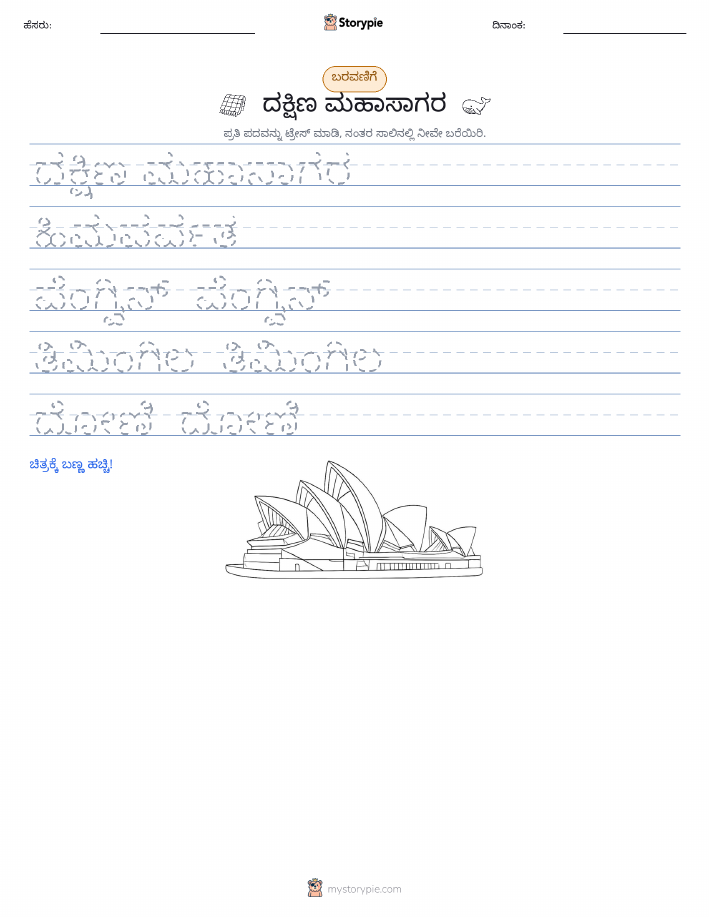 ಹೆಸರು:
Storypie
ದಿನಾಂಕ:
ಬರವಣಿಗೆ
ದಕ್ಷಿಣ ಮಹಾಸಾಗರ
ಪ್ರತಿ ಪದವನ್ನು ಟ್ರೇಸ್ ಮಾಡಿ, ನಂತರ ಸಾಲಿನಲ್ಲಿ ನೀವೇ ಬರೆಯಿರಿ.
ದಕ್ಷಿಣ ಮಹಾಸಾಗರ
ಹಿಮಪರ್ವತ
ಪೆಂಗ್ವಿನ್ ಪೆಂಗ್ವಿನ್
ತಿಮಿಂಗಿಲ ತಿಮಿಂಗಿಲ
ದೋಣಿ ದೋಣಿ
ಚಿತ್ರಕ್ಕೆ ಬಣ್ಣ ಹಚ್ಚಿ!
mystorypie.com